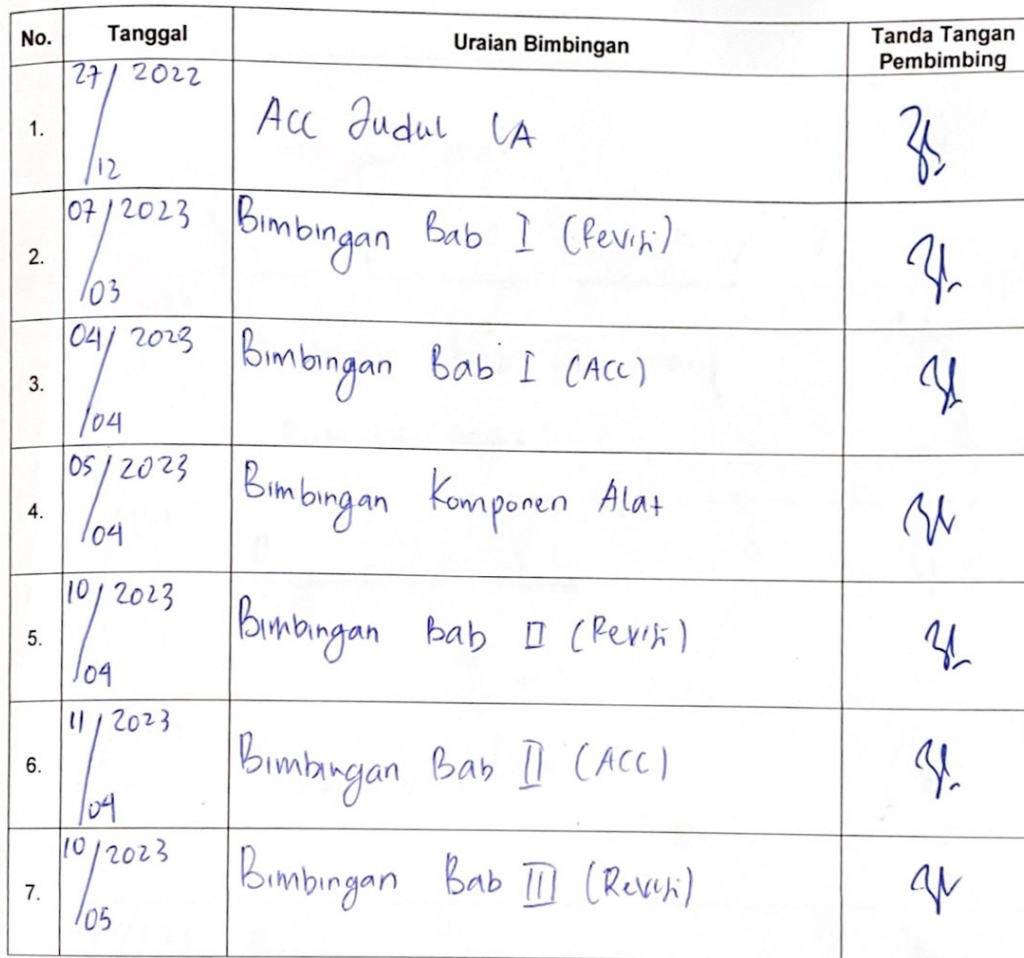 No. Tanggal Uraian Bimbingan Tanda Tangan
Pembimbing
27/ 2022
1. Acc Judul LA
/12
07/2023
2. Bimbingan Bab I (Revisi)
/03
04/ 2023
3. Bimbingan Bab I (ACC)
/04
05/2023
4. Bimbingan Komponen Alat
/04
10/2023
5. Bimbingan Bab II (Revisi)
/04
11/2023
6. Bimbingan Bab II (ACC)
/04
10/2023
7. Bimbingan Bab III (Revisi)
/05